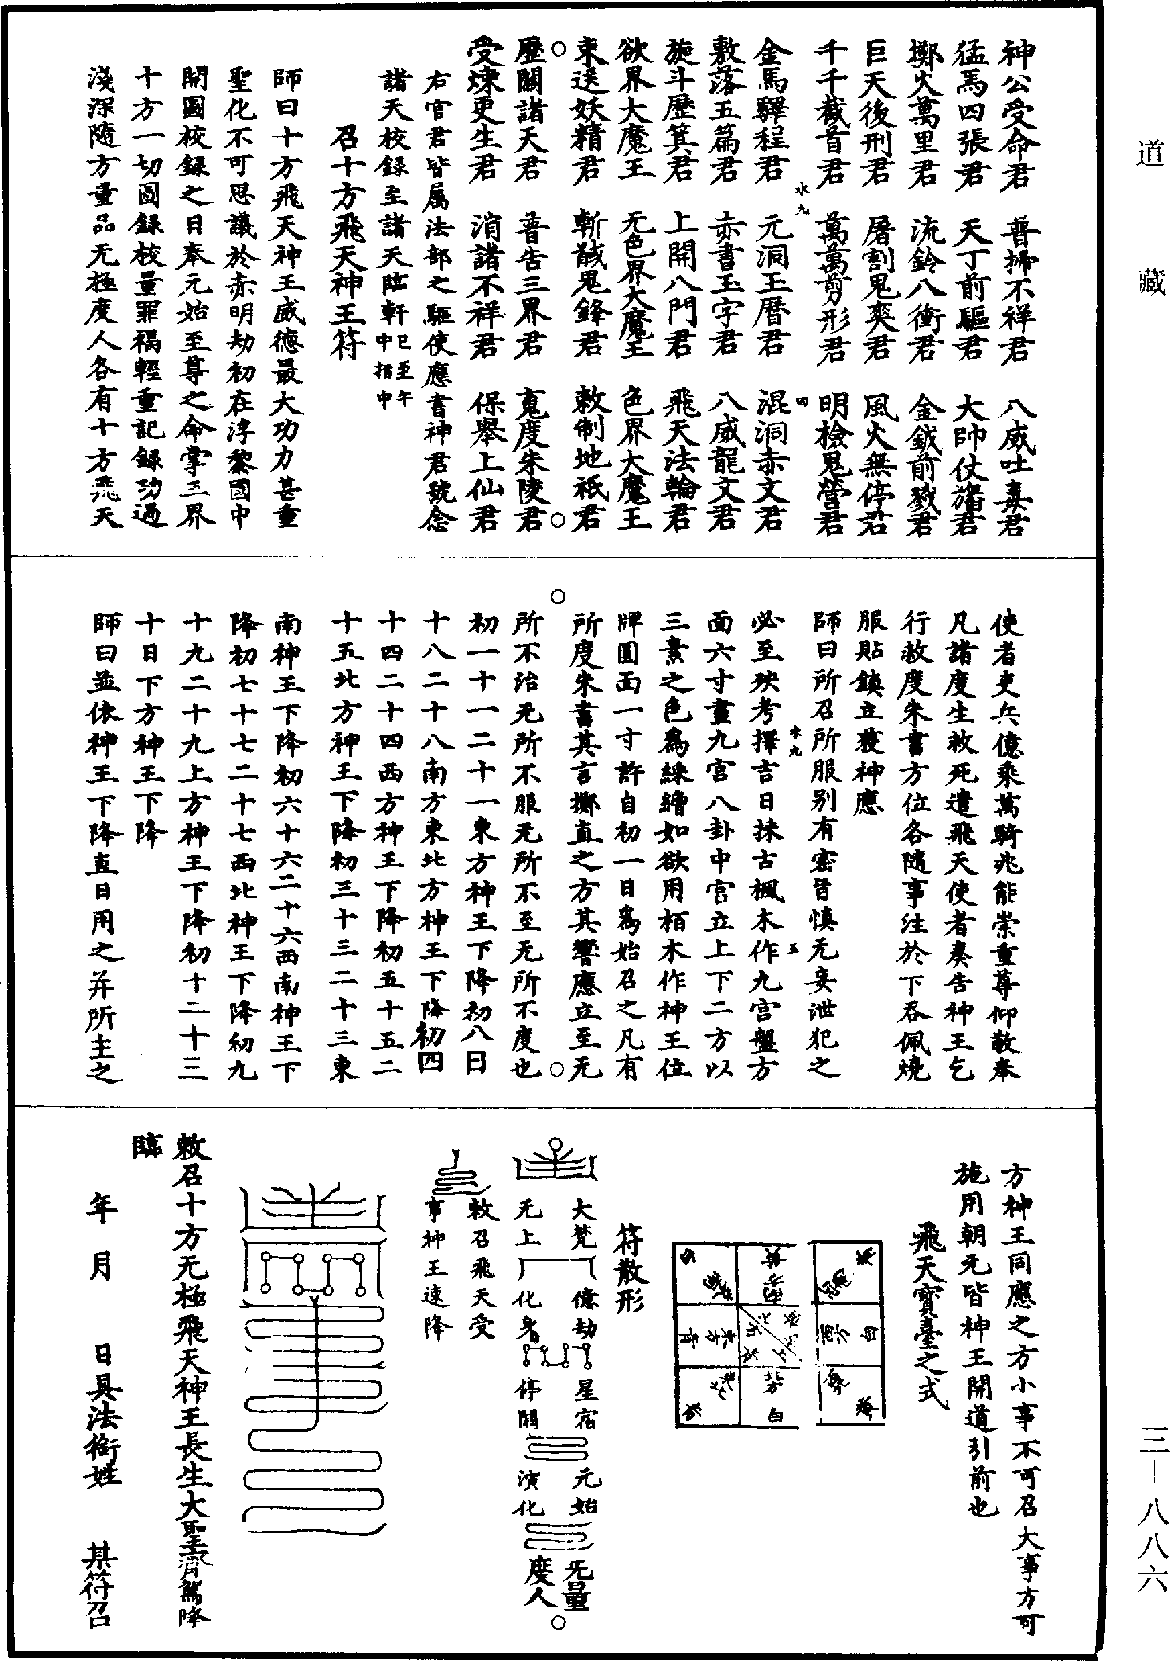 道藏
神公受命君　普掃不祥君　八威吐毒君
猛馬四張君　天丁前驅君　大帥仗旛君
擲火萬里君　流鈴八衝君　金鉞前戮君
巨天後刑君　屠割鬼爽君　風火無停君
千千截首君　萬萬剪形君　明檢鬼營君
水九
四
金馬驛程君　元洞玉曆君　混洞赤文君
敷落五篇君　赤書玉字君　八威龍文君
施斗歷箕君　上開八門君　飛天法輪君
欲界大魔王　无色界大魔王　色界大魔王
束送妖精君　斬馘鬼鋒君　敕制地祇君
歷關諸天君　普告三界君　嵬度朱陵君
受煉更生君　消諸不祥君　保舉上仙君
右官君皆屬法部之驅使應書神君號念
諸天校錄至諸天臨軒巳至午中指中
召十方飛天神王符
師曰十方飛天神王威德最大功力甚重
聖化不可思議於赤明劫初在浮黎國中
開圖校錄之日奉元始至尊之命掌三界
十方一切圖錄校量罪福輕重記錄功過
淺深隨方量品无極度人各有十方飛天
使者吏兵億乘萬騎兆能崇重尊仰敬奉
凡諸度生救死遣飛天使者奏告神王乞
行赦度朱書方位各隨事注於下吞佩燒
服貼鎮立獲神應
師曰所召所服別有密旨慎无妄泄犯之
水九
五
必至殃考擇吉日採古楓木作九宮盤方
面六寸畫九宮八卦中宮立上下二方以
三素之色為綵繪如欲用栢木作神王位
牌圓面一寸許自初一日為始召之凡有
所度朱書其言擲直之方其響應立至无
所不治无所不服无所不至无所不度也
初一十一二十一東方神王下降初八日
十八二十八南方東北方神王下降初四
十四二十四西方神王下降初五十五二
十五北方神王下降初三十三二十三東
南神王下降初六十六二十六西南神王下
降初七十七二十七西北神王下降初九
十九二十九上方神王下降初十二十三
十日下方神王下降
師曰並依神王下降直日用之并所主之
方神王同應之方小事不可召大事方可
施用朝元皆神王開道引前也
飛天寶臺之式
符散形
大梵　億劫　星宿　元始　无量
无上　化身　停關　演化　度人
敕召飛天受
事神王速降
敕召十方无極飛天神王長生大聖齊駕降
臨
年　月　日具法銜姓　某符召
三－八八六